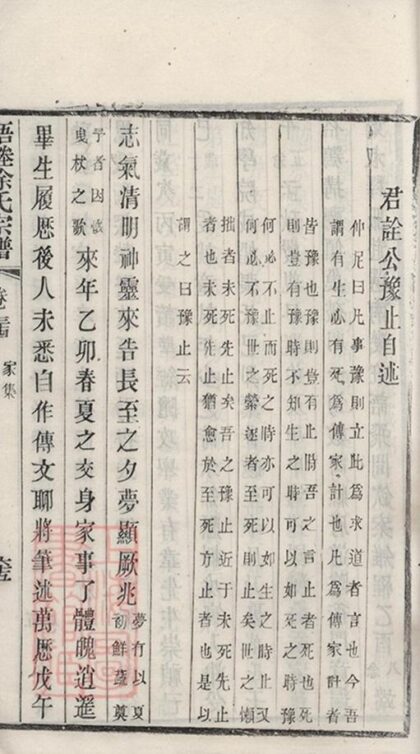 君詮公豫止自述
仲尼曰凡事豫則立此爲求道者言也今吾
謂有生必有死爲傳家計也凡爲傳家計者
皆豫也豫則豈有止時吾之言止者死也死
豈有豫時不知生之時可以如死之時豫
何必不止而死之時亦可以如生之時止
何必不豫世之縈逐者至死則止矣世之懶
拙者未死先止矣吾之豫止近于未死先止
者也未死先止猶愈於至死方止者也是以
謂之曰豫止云
志氣清明神靈來告長至之夕夢顯厥兆夢有以夏初鮮蔬奠
予者因歌曳杖之歌來年乙卯春夏之交身家事了體魄逍遥
畢生履歷後人未悉自作傳文聊將筆述萬歷戊午
梧塍徐氏宗譜 卷 家集